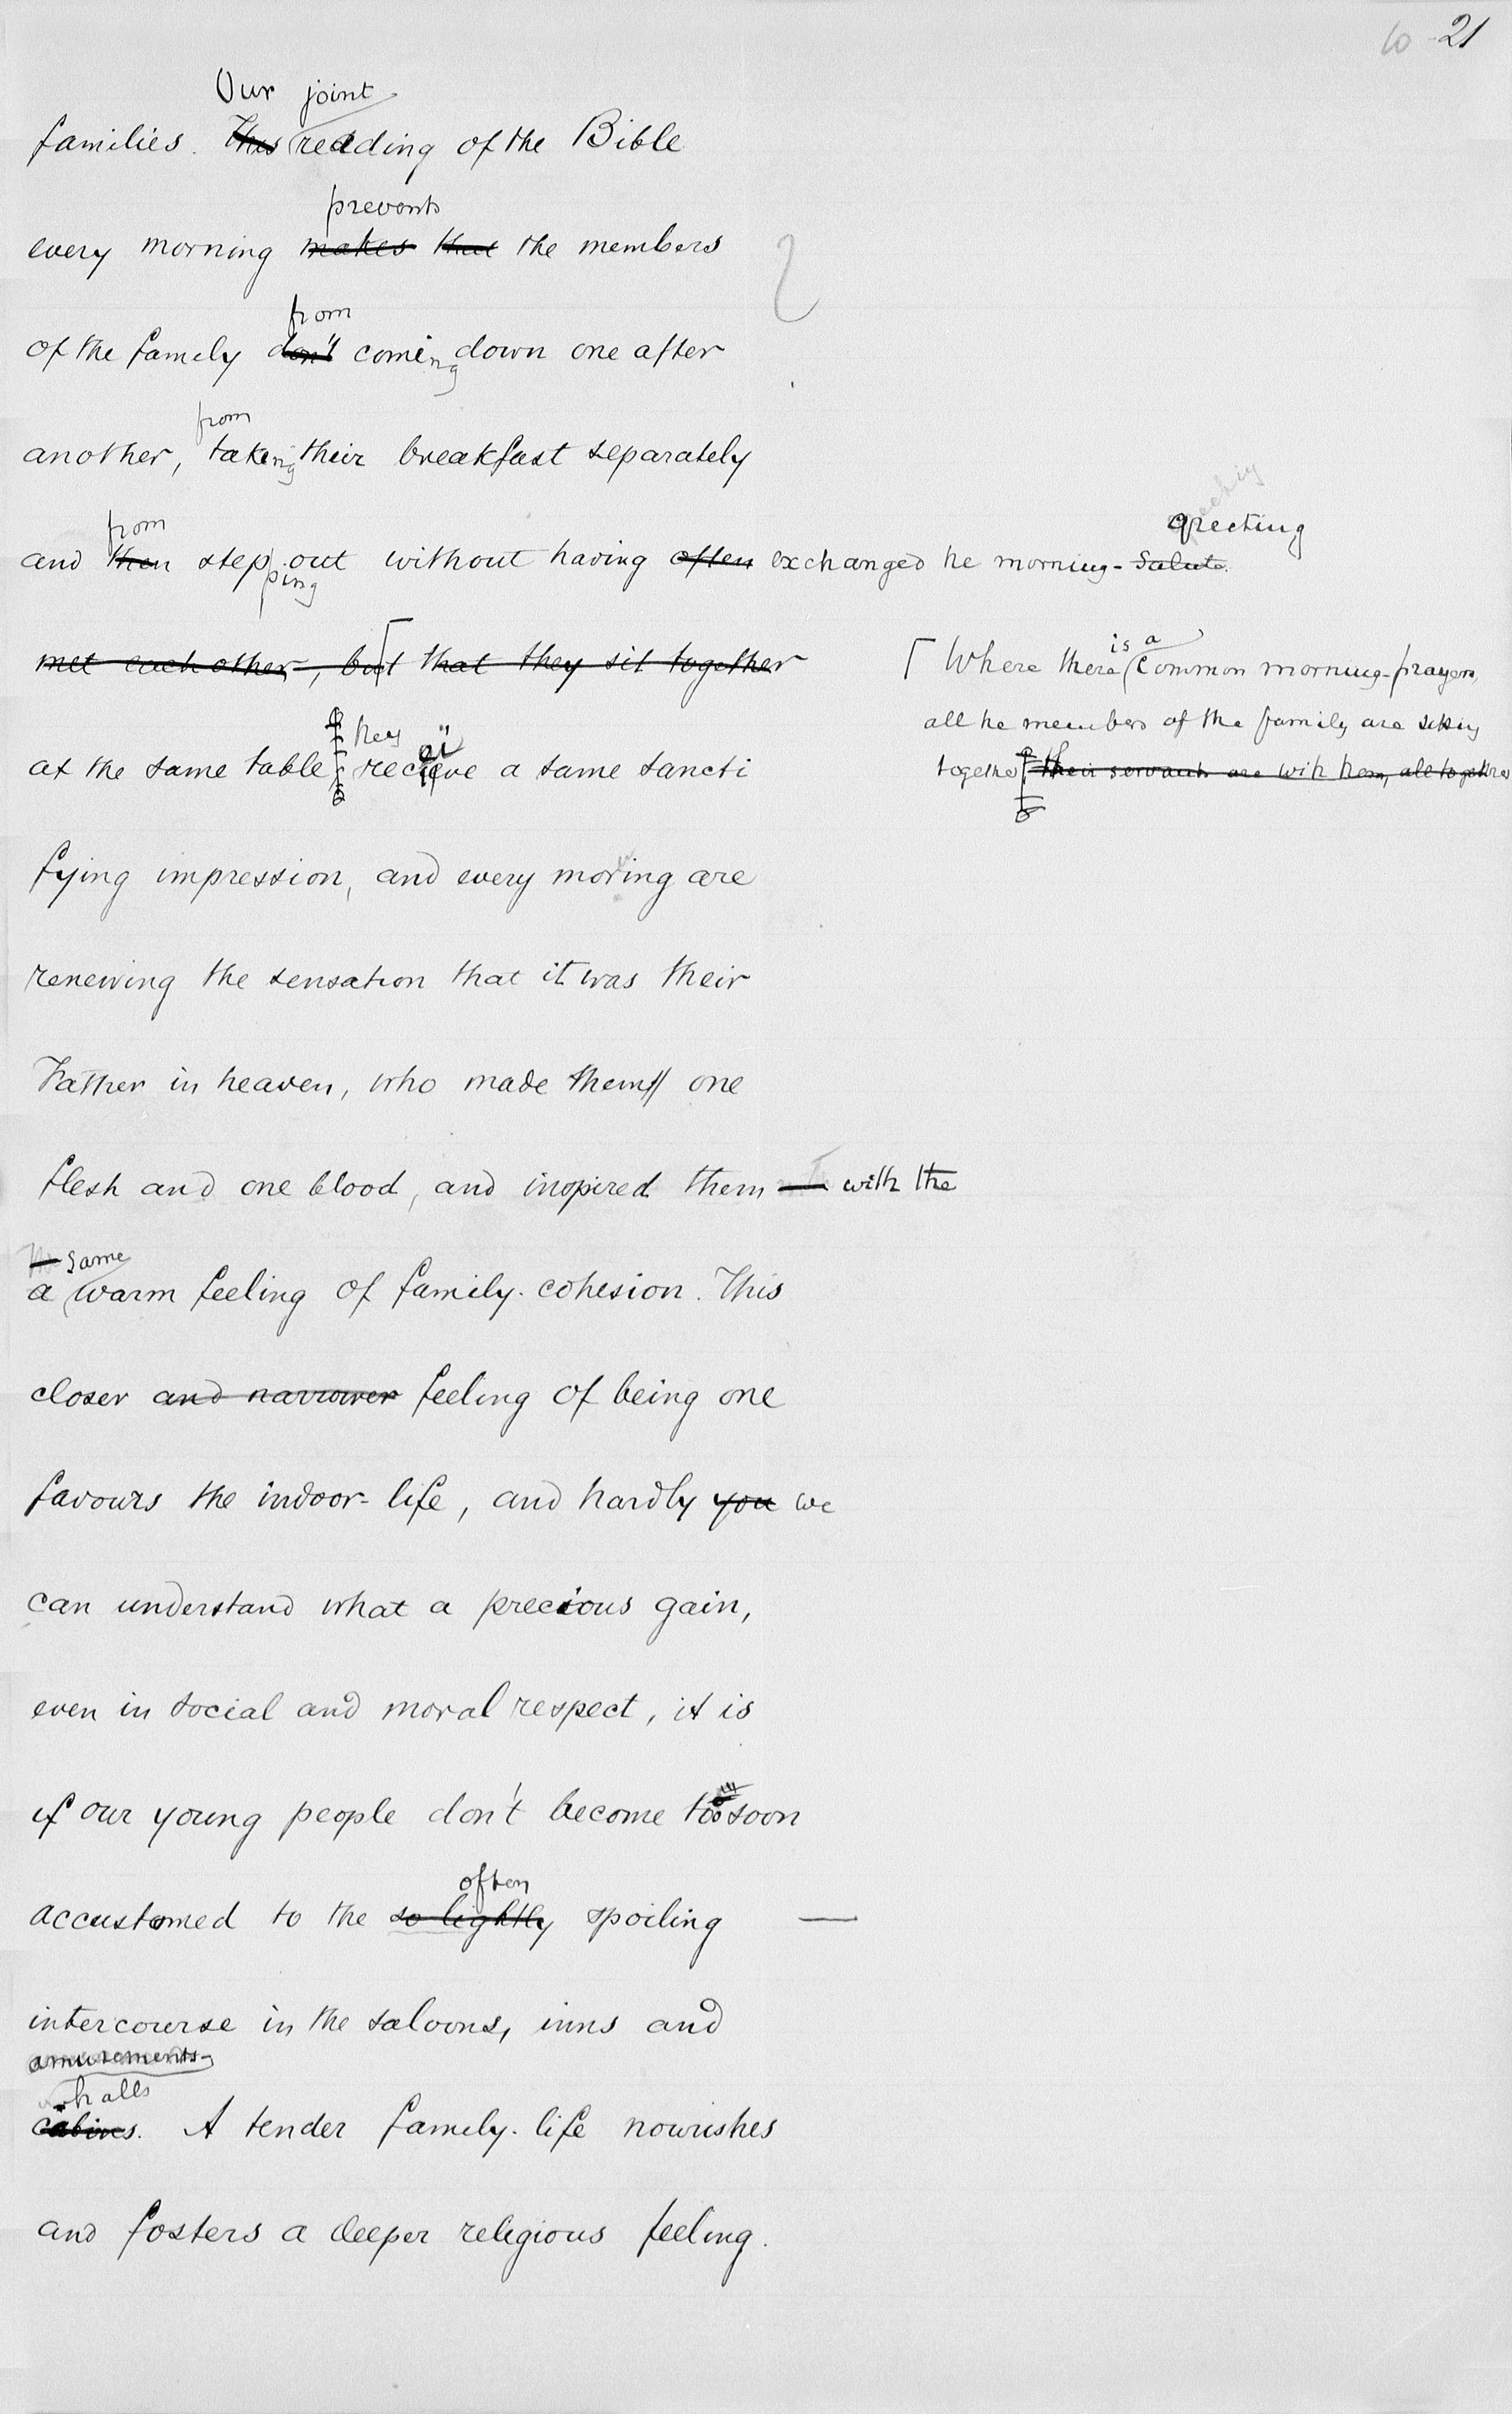 10 21
Our joint
families. This reading of the Bible
prevents
every morning makes that the members
from
of the family don't coming down one after
from
another, taking their breakfast separately
greeting
from
and then stepping out without having often exchanged he morning-salute.
met each other, but that they sit together
⌈ Where there is a common morning-prayers,
all he members of the family are sitting
together their servants are with hem, all together
at the same table, hey receive a same sancti
fying impression, and every morning are
renewing the sensation that it was their
Father in heaven, who made them one
flesh and one blood, and inspired them — with the
same
a warm feeling of family-cohesion. This
closer and narrower feeling of being one
favours the indoor-life, and hardly you we
can understand what a precious gain,
even in social and moral respect, it is
if our young people don't become too soon
often
accustomed to the so lightly spoiling —
intercourse in the saloons, inns and
amusements-
halls
cabines. A tender family-life nourishes
and fosters a deeper religious feeling.